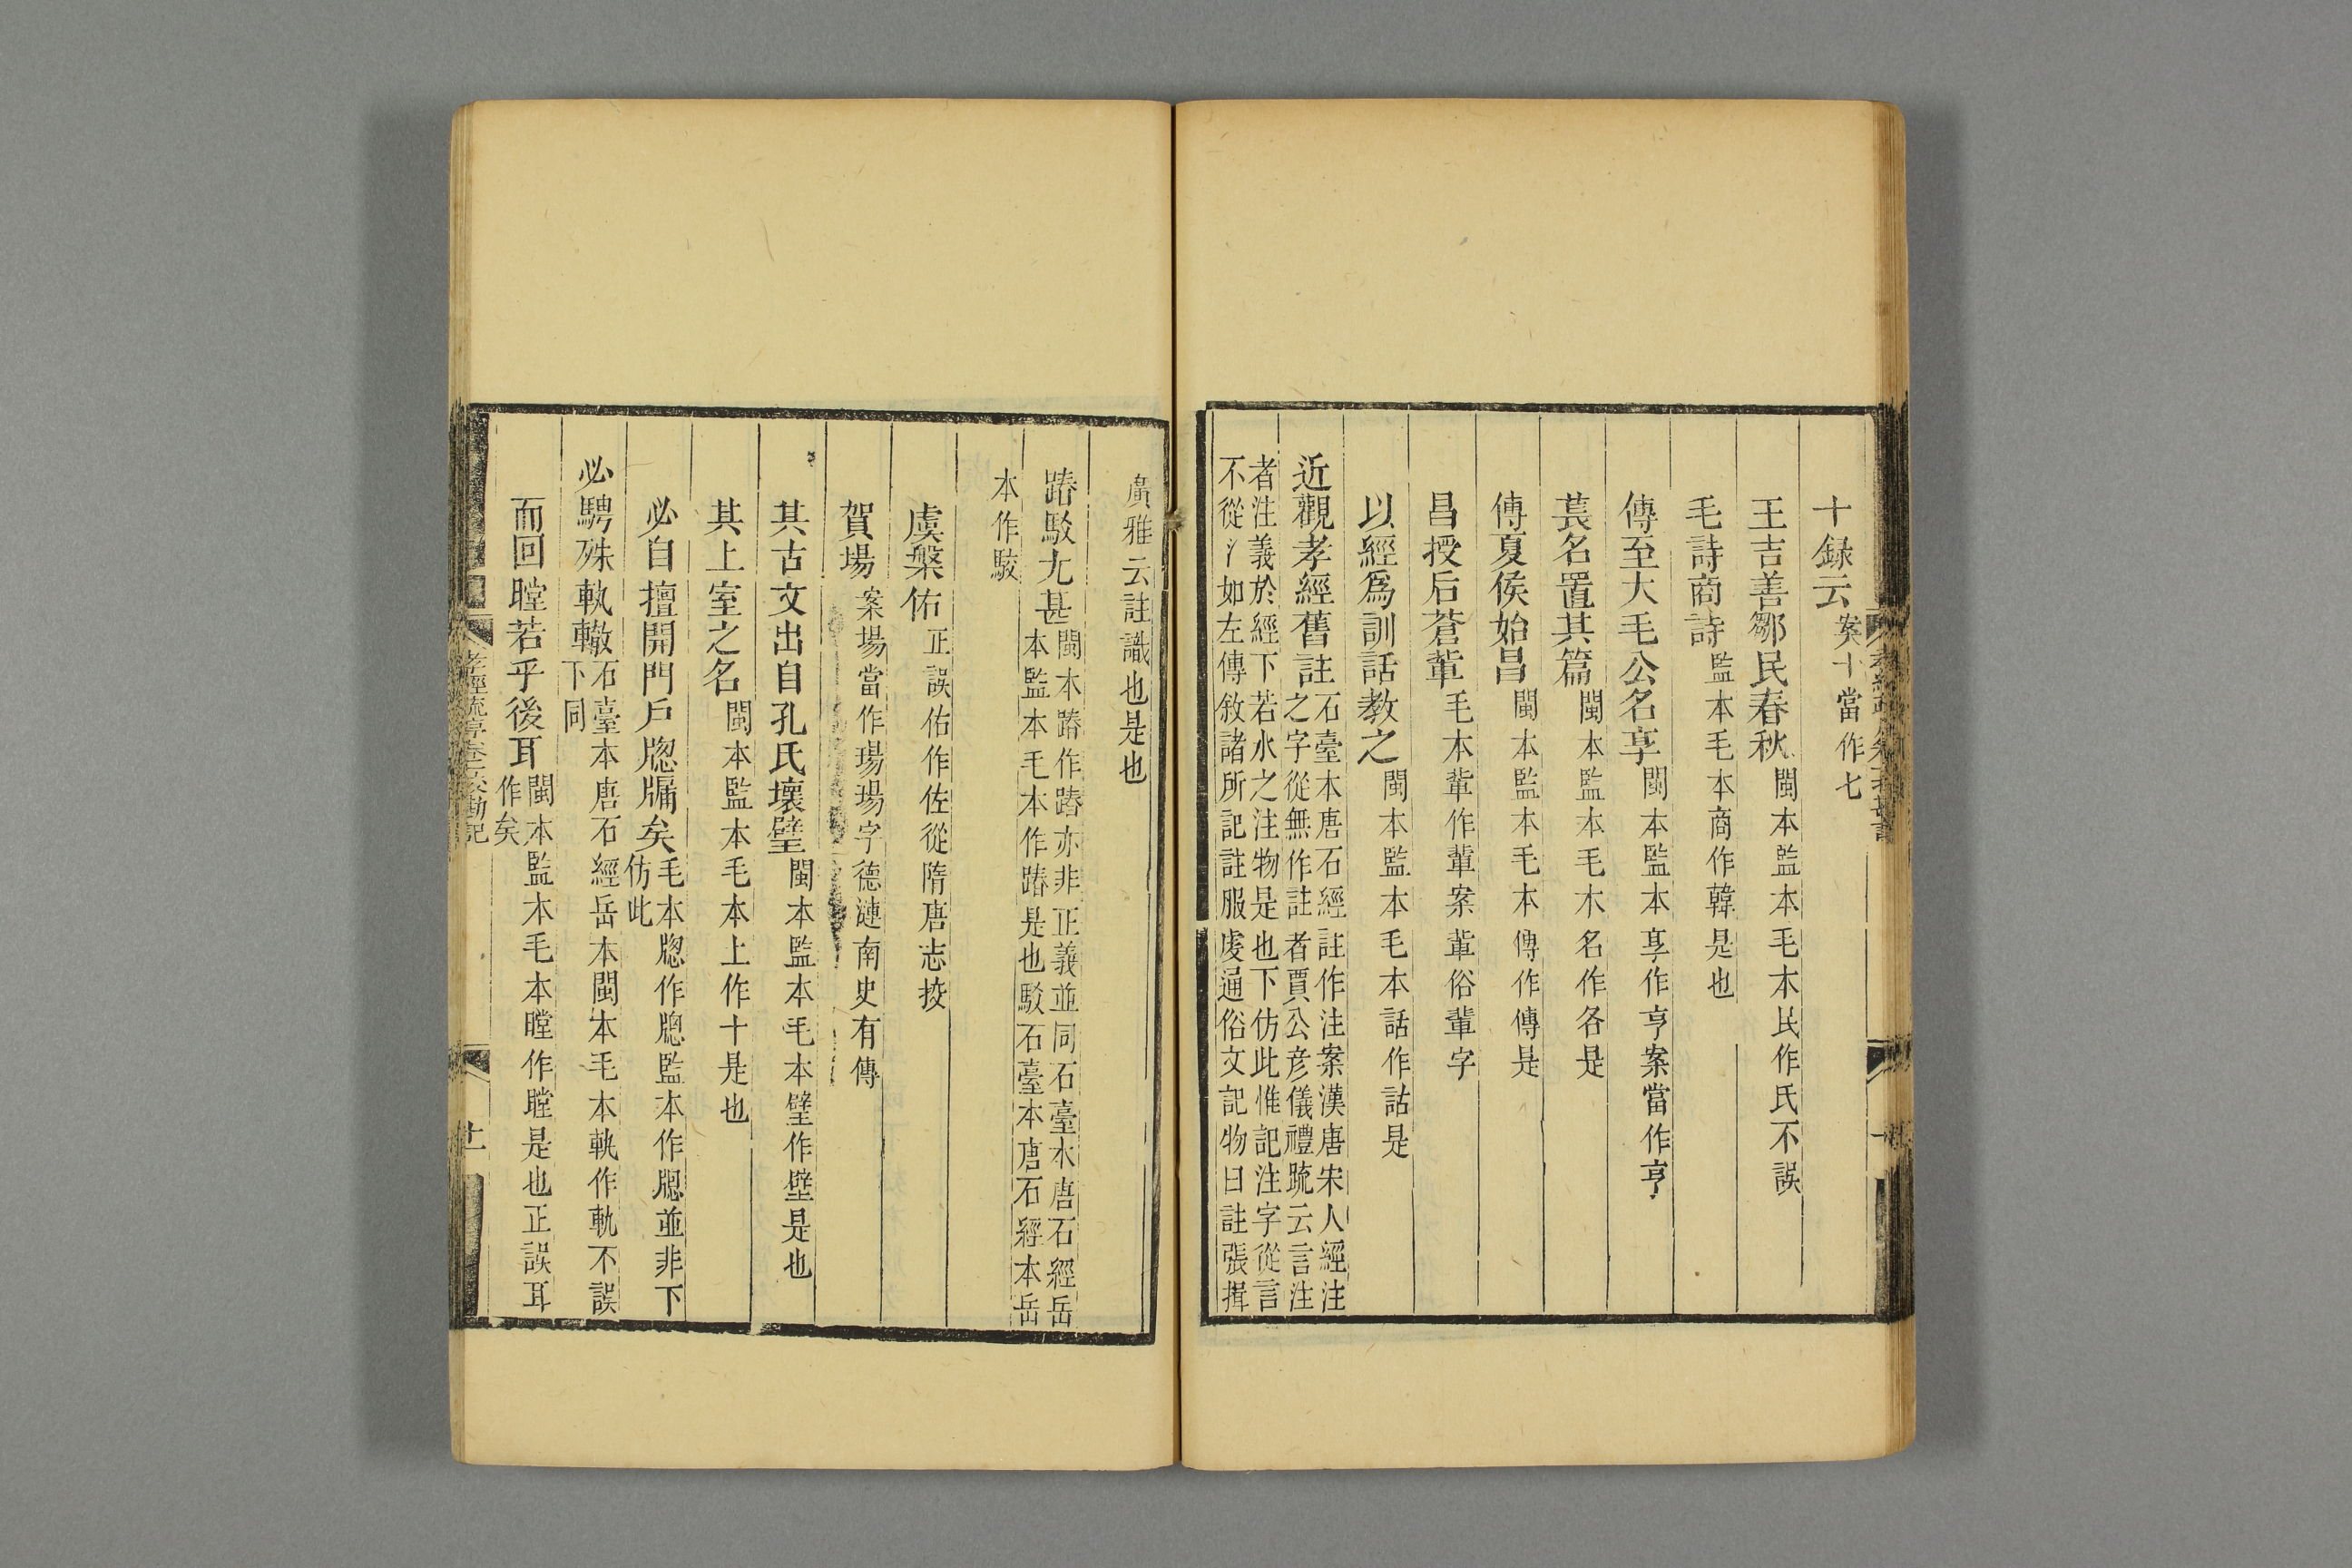 十録云案十當作七
王吉善鄒民春秋閩本監本毛本民作氏不誤
毛詩商詩監本毛本商作韓是也
傳至大毛公名享閩本監本享作亨案當作亨
萇名置其篇閩本監本毛本名作各是
傅夏侯始昌閩本監本毛本傅作傳是
昌授后蒼軰毛本軰作輩案軰俗輩字
以經爲訓話教之閩本監本毛本話作詁是
近觀孝經舊註石臺本唐石經註作注案漢唐宋人經注
之字從無作註者賈公彦儀禮疏云言注
者注義於經下若水之注物是也下仿此惟記注字從言
不從氵如左傳敘諸所記註服虔通俗文記物曰註張揖
廣雅云註識也是也
踳駁尤甚閩本踳作蹖亦非正義並同石臺本唐石經岳
本監本毛本作踳是也駁石臺本唐石經本岳
本作駮
虞槃佑正誤佑作佐從隋唐志挍
賀場案場當作瑒瑒字德漣南史有傳
其古文出自孔氏壞璧閩本監本毛本璧作壁是也
其上室之名閩本監本毛本上作十是也
必自擅開門戶牎牖矣毛本牎作牕監本作牕並非下
仿此
必騁殊執轍石臺本唐石經岳本閩本毛本執作軌不誤
下同
而回瞠若乎後耳閩本監本毛本瞠作瞠是也正誤耳
作矣
孝經疏序卷一挍勘記
孝經疏序卷一挍勘記
十一